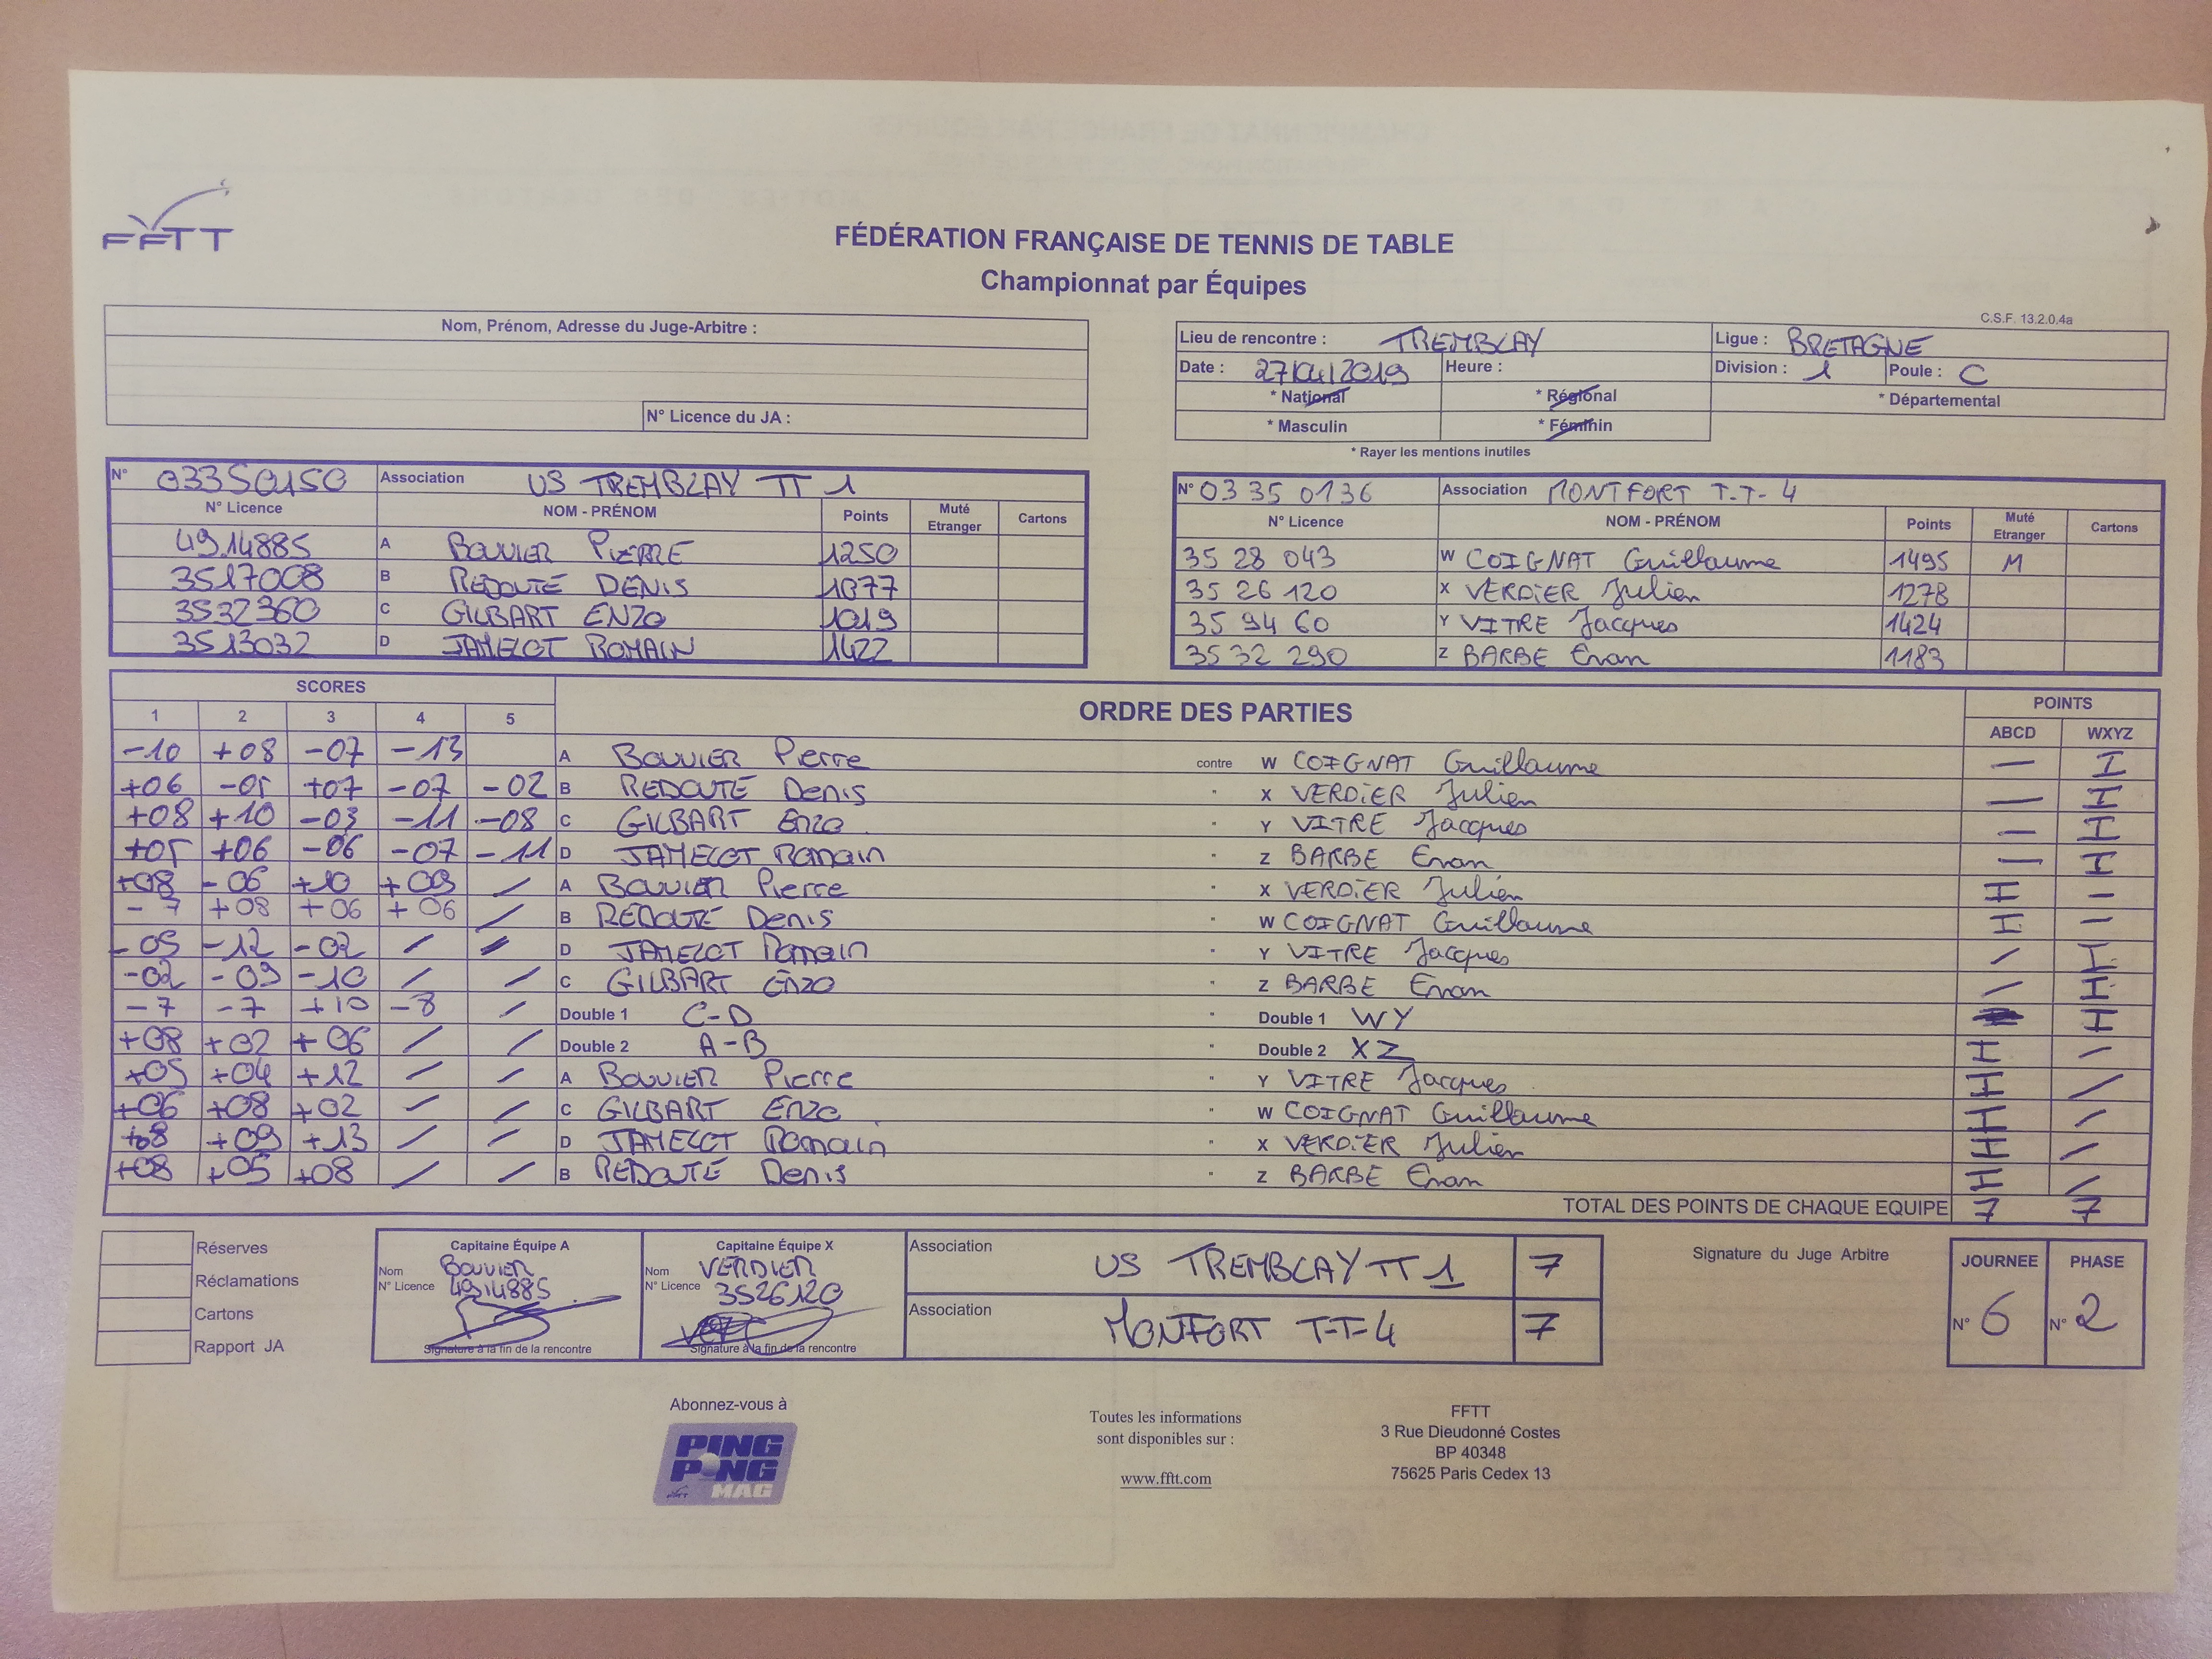 FFTT
FÉDÉRATION FRANÇAISE DE TENNIS DE TABLE
Championnat par Équipes
C.S.F. 13.2.0.4a
Nom, Prénom, Adresse du Juge-Arbitre :
N° Licence du JA :
Lieu de rencontre : TREMBLAY Ligue : BRETAGNE
Date : 27/04/2019 Heure : Division : 1 Poule : C
* National * Régional * Départemental
* Masculin * Féminin
* Rayer les mentions inutiles
N° 03350150 Association US TREMBLAY TT 1
N° Licence NOM - PRÉNOM Points Muté Etranger Cartons
4914885 A BOUVIER PIERRE 1250
3517008 B REDOUTÉ DENIS 1077
3532360 C GILBART ENZO 1019
3513032 D JAMELOT ROMAIN 1422
N° 03 35 0136 Association MONTFORT T.T- 4
N° Licence NOM - PRÉNOM Points Muté Etranger Cartons
35 28 043 W COIGNAT Guillaume 1495 M
35 26 120 X VERDIER Julien 1278
35 94 60 Y VITRE Jacques 1424
35 32 290 Z BARBE Evan 1183
SCORES ORDRE DES PARTIES POINTS
1 2 3 4 5 ABCD WXYZ
-10 +08 -07 -13 A BOUVIER Pierre contre W COIGNAT Guillaume – I
+06 -05 +07 -07 -02 B REDOUTÉ Denis " X VERDIER Julien – I
+08 +10 -03 -11 -08 C GILBART Enzo " Y VITRE Jacques – I
+05 +06 -06 -07 -11 D JAMELOT Romain " Z BARBE Evan – I
+08 -06 +10 +09 / A BOUVIER Pierre " X VERDIER Julien I –
-7 +08 +06 +06 / B REDOUTÉ Denis " W COIGNAT Guillaume I –
-05 -12 -02 / / D JAMELOT Romain " Y VITRE Jacques / I
-02 -09 -10 / / C GILBART Enzo " Z BARBE Evan / I
-7 -7 +10 -8 / Double 1 C-D " Double 1 WY I
+08 +02 +06 / / Double 2 A-B " Double 2 XZ I /
+05 +04 +12 / / A BOUVIER Pierre " Y VITRE Jacques I /
+06 +08 +02 / / C GILBART Enzo " W COIGNAT Guillaume I /
+08 +09 +13 / / D JAMELOT Romain " X VERDIER Julien I /
+08 +05 +08 / / B REDOUTÉ Denis " Z BARBE Evan I /
TOTAL DES POINTS DE CHAQUE EQUIPE 7 7
Réserves
Réclamations
Cartons
Rapport JA
Capitaine Équipe A
Nom BOUVIER
N° Licence 4914885
Signature à la fin de la rencontre
Capitaine Équipe X
Nom VERDIER
N° Licence 3526120
Signature à la fin de la rencontre
Association US TREMBLAY TT 1 7
Association MONTFORT T-T-4 7
Signature du Juge Arbitre
JOURNEE PHASE
N° 6 N° 2
Abonnez-vous à
PING PONG MAG
Toutes les informations
sont disponibles sur :
www.fftt.com
FFTT
3 Rue Dieudonné Costes
BP 40348
75625 Paris Cedex 13